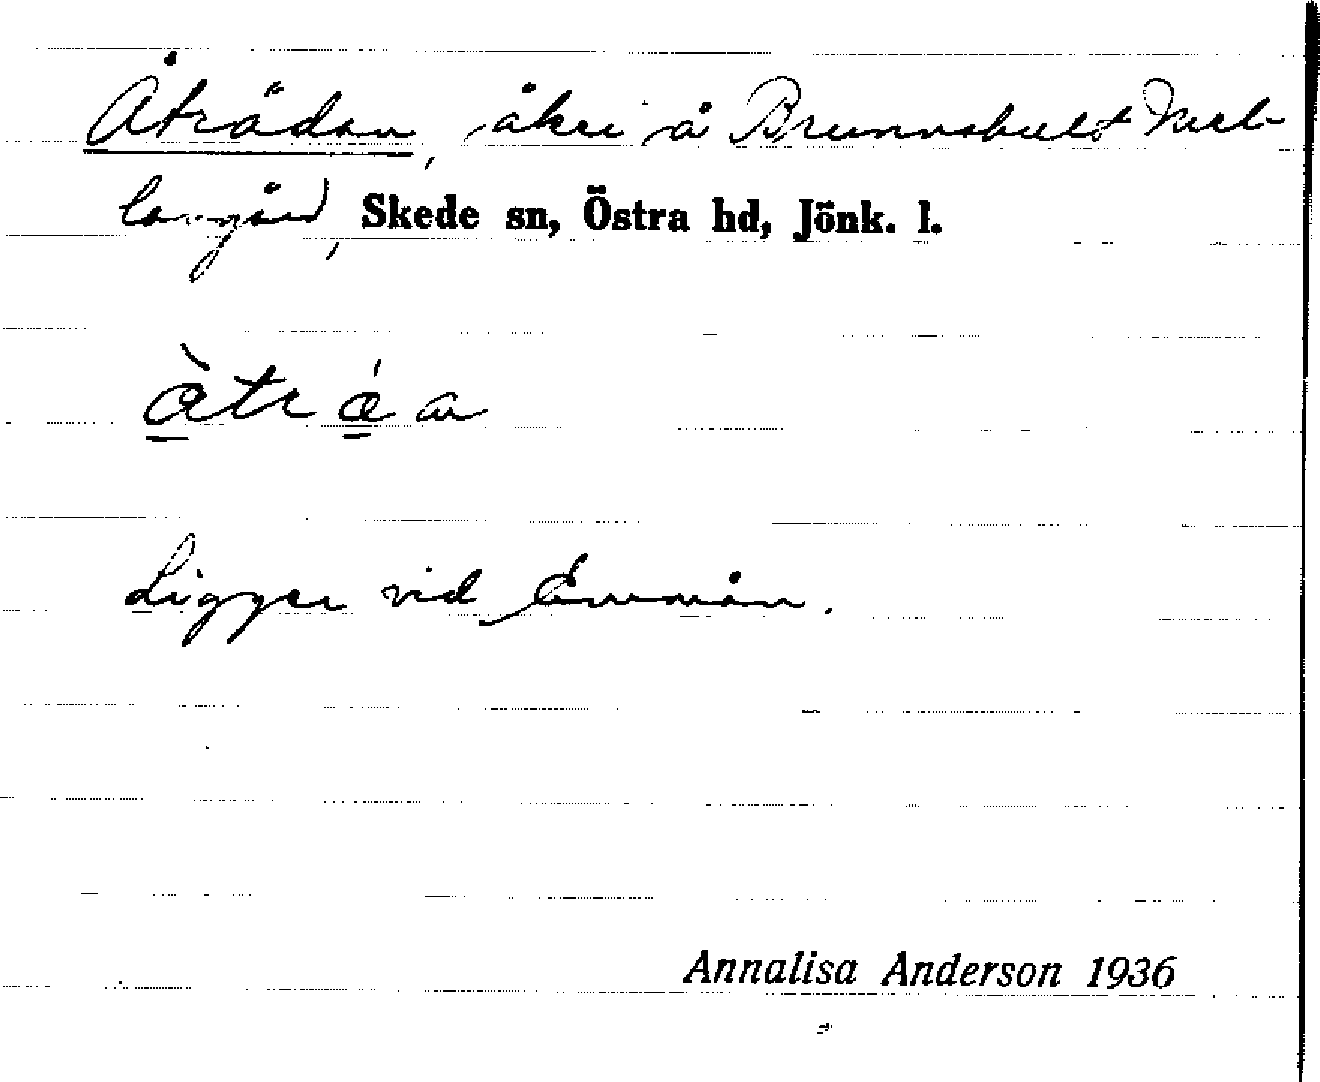 Åträdan, åker å Brunnshult Mel-
langård, Skede sn, Östra hd, Jönk. l.
àtráa
Ligger vid Emmån.
Annalisa Anderson 1936